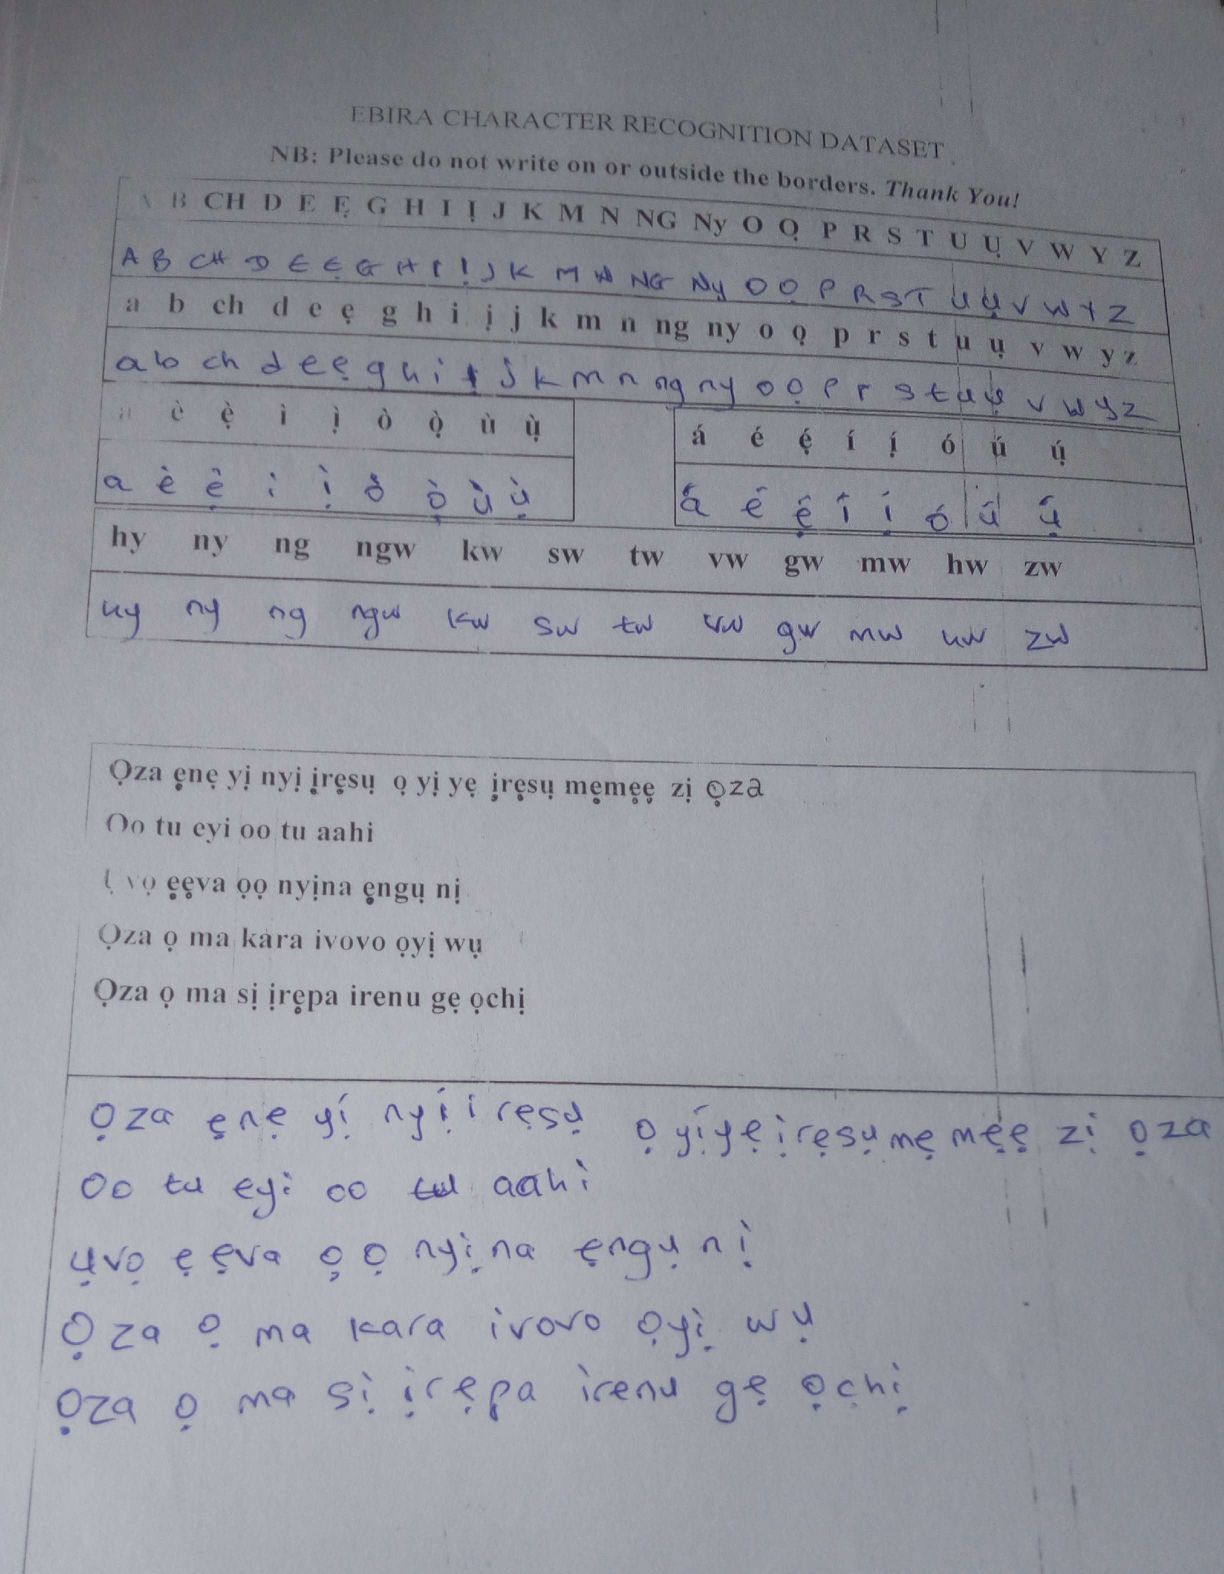 EBIRA CHARACTER RECOGNITION DATASET
NB: Please do not write on or outside the borders. Thank You!
A B CH D E Ẹ G H I Ị J K M N NG Ny O Ọ P R S T U Ụ V W Y Z
A B CH D E Ẹ G H I Ị J K M N NG Ny O Ọ P R S T U Ụ V W Y Z
a b ch d e ẹ g h i ị j k m n ng ny o ọ p r s t u ụ v w y z
a b ch d e ẹ g h i ị j k m n ng ny o ọ p r s t u ụ v w y z
a è ẹ̀ ì ị̀ ò ọ̀ ù ụ̀ á é ẹ́ í ị́ ó ú ụ́
a è ẹ̀ ì ị̀ ò ọ̀ ù ụ̀ á é ẹ́ í ị́ ó ú ụ́
hy ny ng ngw kw sw tw vw gw mw hw zw
hy ny ng ngw kw sw tw vw gw mw hw zw
Ọza ẹnẹ yị nyị ịrẹsụ ọ yị yẹ ịrẹsụ mẹmẹẹ zị ọza
Oo tu eyi oo tu aahi
Ụ vọ ẹẹva ọọ nyịna ẹngụ nị
Ọza ọ ma kara ivovo ọyị wụ
Ọza ọ ma sị ịrẹpa irenu gẹ ọchị
Ọza ẹnẹ yị nyị irẹsụ ọ yị yẹ ịrẹsụ mẹ mẹẹ zị ọza
Oo tu eyi oo tu aahi
ụvọ ẹ ẹva ọ ọ nyị na ẹngụ nị
Ọza ọ ma kara ivovo ọyị wụ
Ọza ọ ma sị ịrẹpa irenu gẹ ọchị